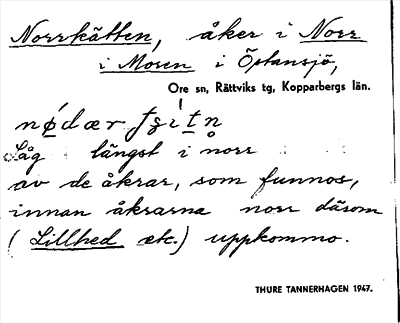 Norrkätten, åker i Norr
i Moren i Östansjö,
Ore sn, Rättviks tg, Kopparbergs län.
Låg längst i norr
av de åkrar, som funnos,
innan åkrarna norr däsom
(Lillhed etc.) uppkommo.
THURE TANNERHAGEN 1947.